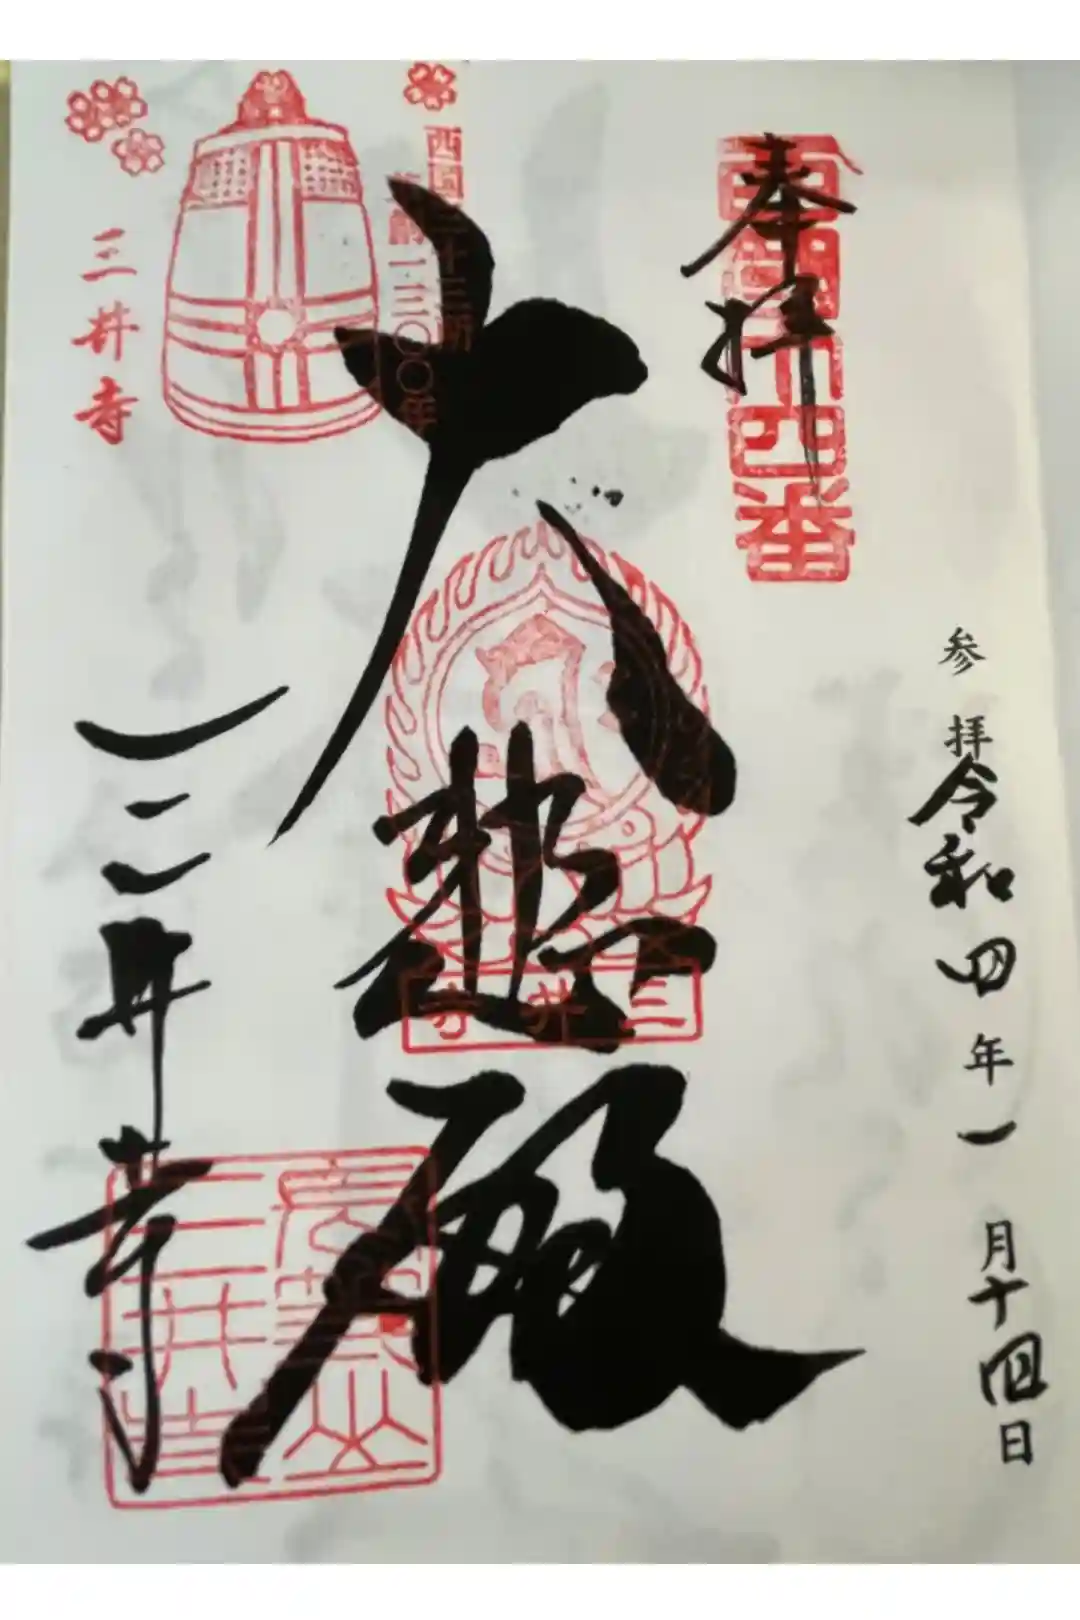 参拝令和四年一月十四日
奉拝
西国十四番
大悲殿
三井寺
西国三十三所
草創一三〇〇年
三井寺
三井寺
三井寺